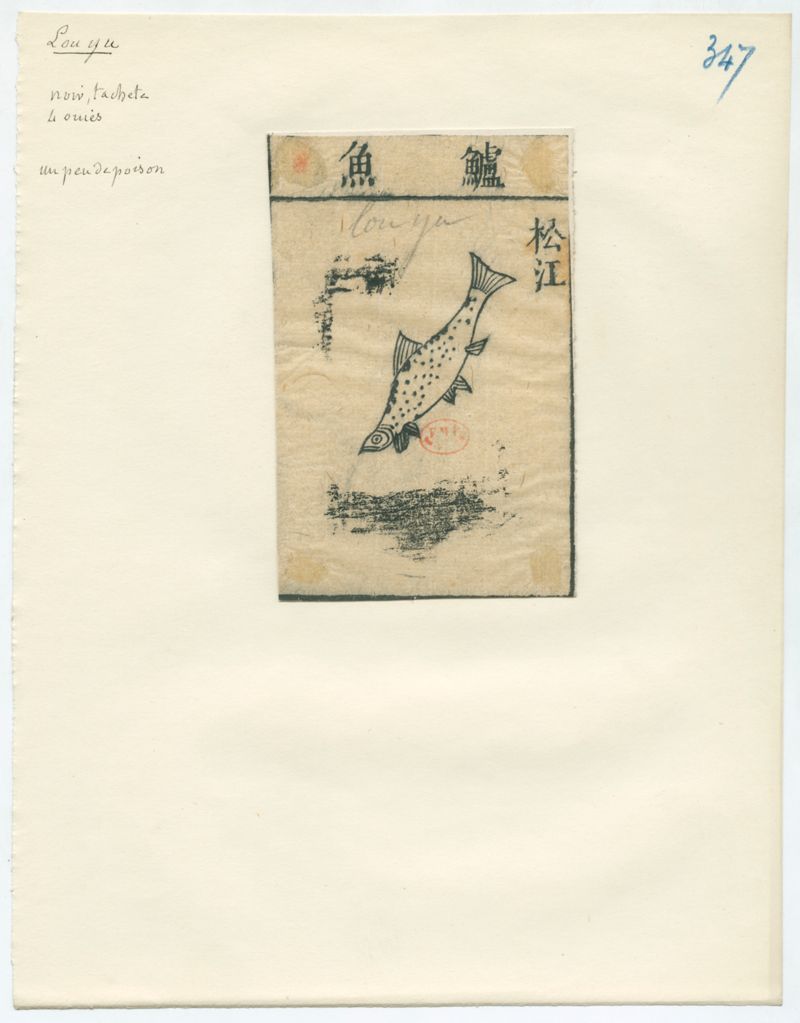 Lou yu
347
noir, tacheté
4 ouies
un peu de poison
魚 鱸
lou yu
松江